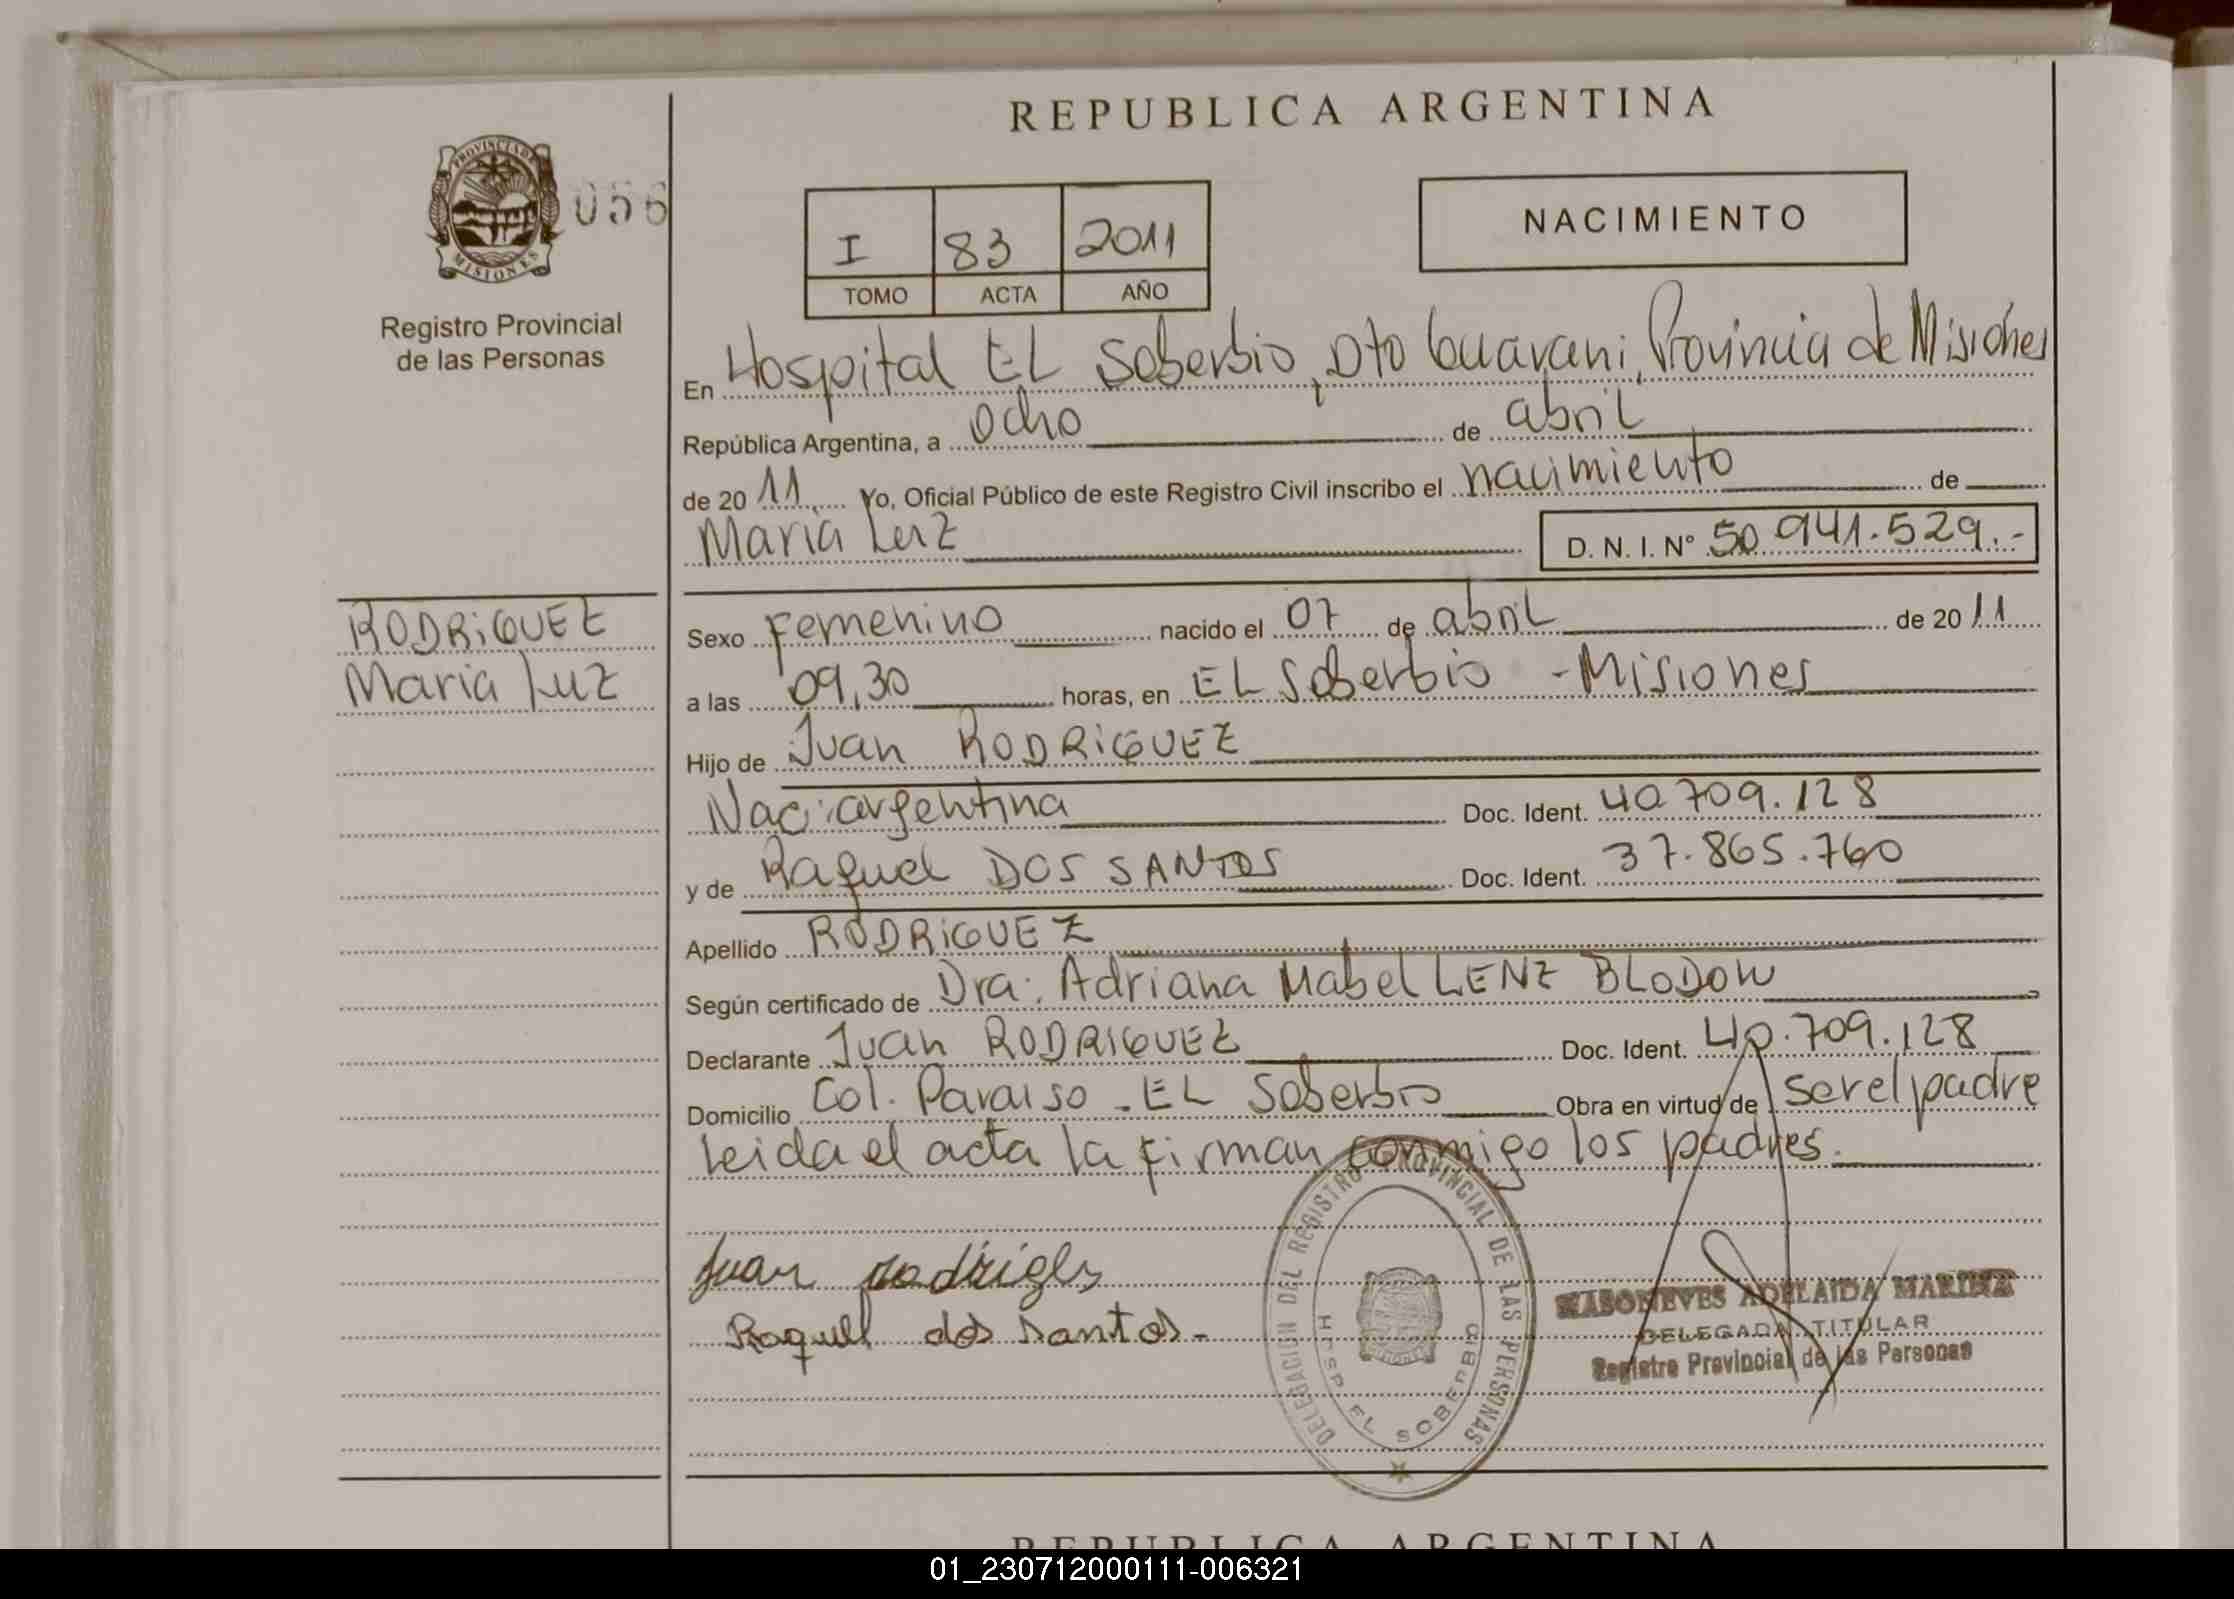 REPUBLICA ARGENTINA
PROVINCIA DE MISIONES
056
Registro Provincial
de las Personas
I 83 2011
TOMO ACTA AÑO
NACIMIENTO
En Hospital EL Soberbio, Dto Guarani, Provincia de Misiones
República Argentina, a ocho de abril
de 2011 Yo, Oficial Público de este Registro Civil inscribo el nacimiento de
Maria Luz D. N. I. N° 50.941.529.-
RODRiGUEZ
Maria Luz
Sexo Femenino nacido el 07 de abril de 2011
a las 09,30 horas, en EL Soberbio - Misiones
Hijo de Juan RODRiGUEZ
Nac: argentina Doc. Ident. 40.709.128
y de Raquel DOS SANTOS Doc. Ident. 37.865.760
Apellido RODRiGUEZ
Según certificado de Dra. Adriana Mabel LENZ BLODOW
Declarante Juan RODRIGUEZ Doc. Ident. 40.709.128
Domicilio Col. Paraiso - EL Soberbio Obra en virtud de ser el padre
Leida el acta la firman conmigo los padres.
Juan rodrigLs
Raquel dos santos.-
DELEGACION DEL REGISTRO PROVINCIAL DE LAS PERSONAS
HOSP. EL SOBERBIO
ADELAIDA MARINA
DELEGADA TITULAR
Registro Provincial de las Personas
REPUBLICA ARGENTINA
01_230712000111-006321